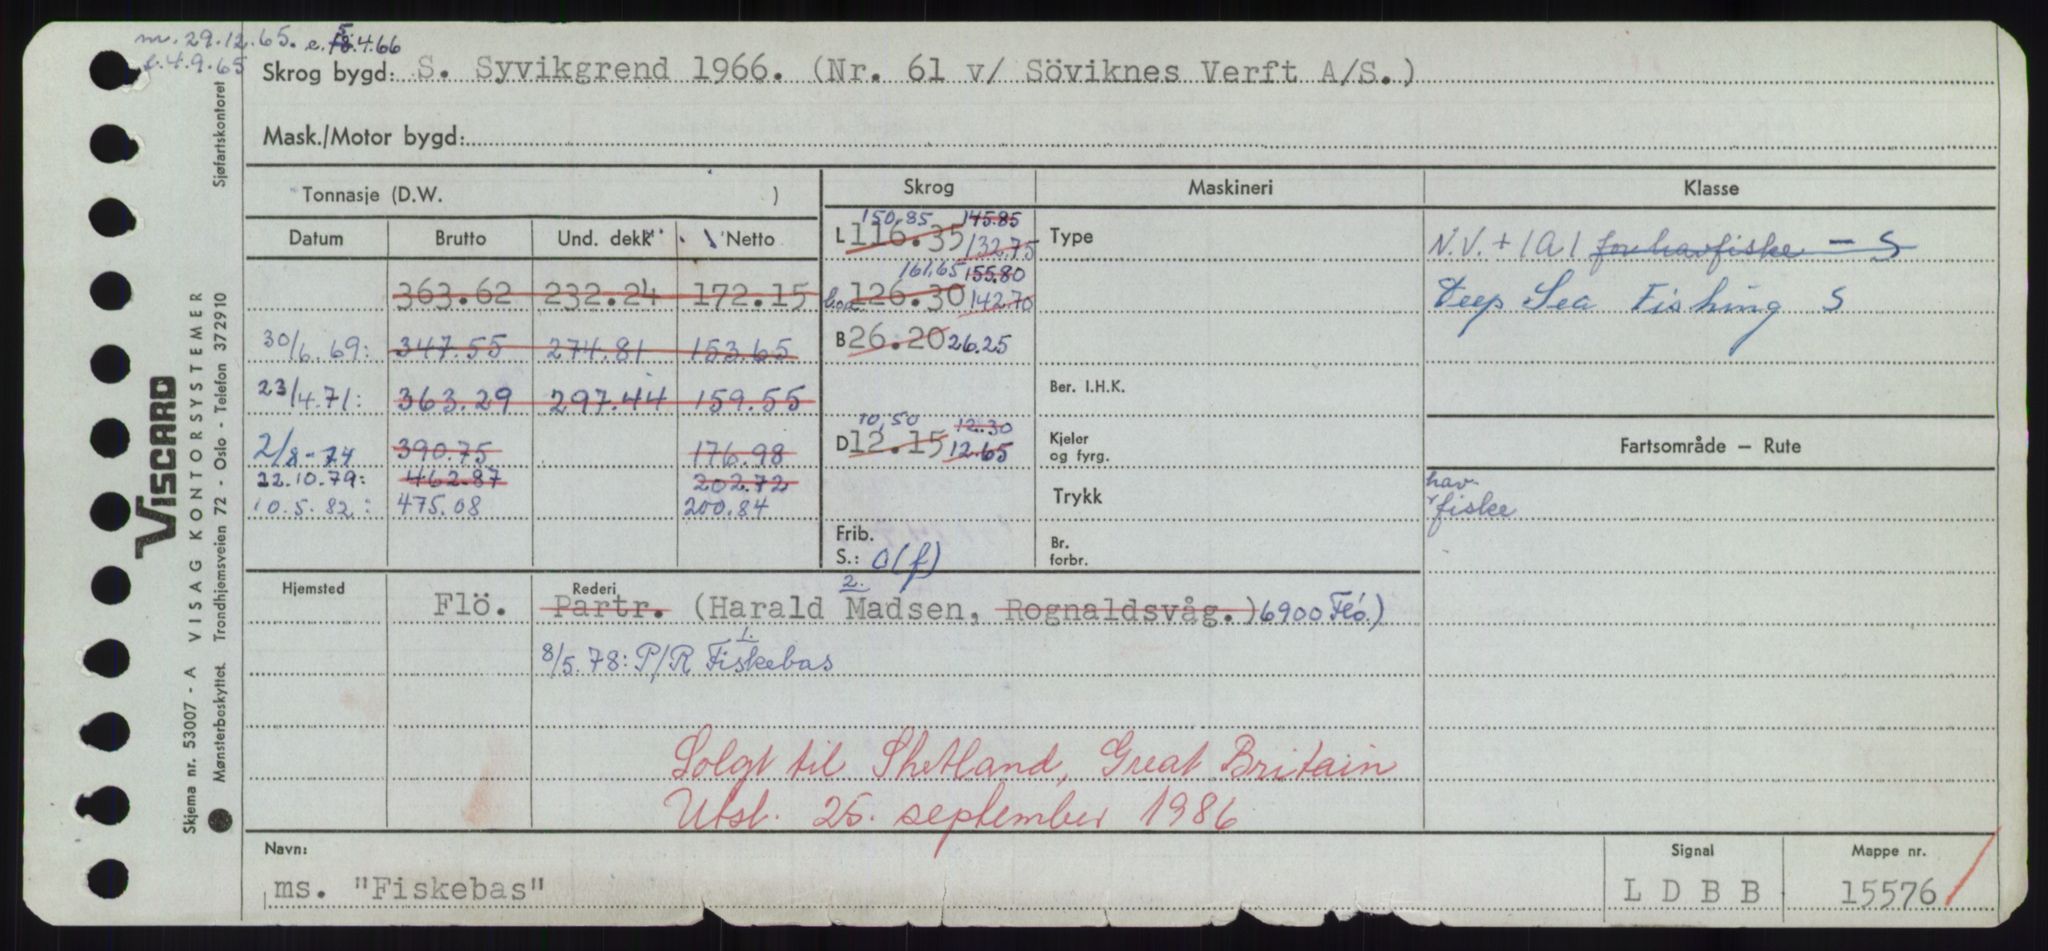 m. 29.12.65. e. 18.4.66
5
l. 4.9.65
Skrog bygd: S. Syvikgrend 1966. (Nr. 61 v/ Söviknes Verft A/S.)
Mask./Motor bygd:
Tonnasje (D.W. )
Skrog
Maskineri
Klasse
Datum Brutto Und. dekk Netto
150,85 145.85
L 116.35 132.75
Type
N.V. + 1A1 for havfiske - S
363.62 232.24 172.15
161,65 155.80
loa 126.30 142.70
Deep Sea Fishing S
30/6.69: 347.55 274.81 153.65
B 26.20 26.25
23/4.71: 363.29 297.44 159.55
Ber. I.H.K.
10,50 12.30
D 12.15 12.65
Kjeler
og fyrg.
Fartsområde — Rute
2/8-74 390.75 176.98
22.10.79: 462.87 202.72
10.5.82: 475.08 200.84
Trykk
hav-
fiske
Frib.
S.: 0(f)
Br.
forbr.
Hjemsted
Flö.
Rederi
2.
Partr. (Harald Madsen, Rognaldsvåg.) 6900 Flö.)
1.
8/5.78: P/R Fiskebas
Solgt til Shetland, Great Britain
Utsl. 25. september 1986
Navn:
ms. "Fiskebas"
Signal
L D B B
Mappe nr.
15576
VISCARD
Skjema nr. 53007 - A VISAG KONTORSYSTEMER
Mønsterbeskyttet. Trondhjemsveien 72 - Oslo - Telefon 372910 Sjøfartskontoret